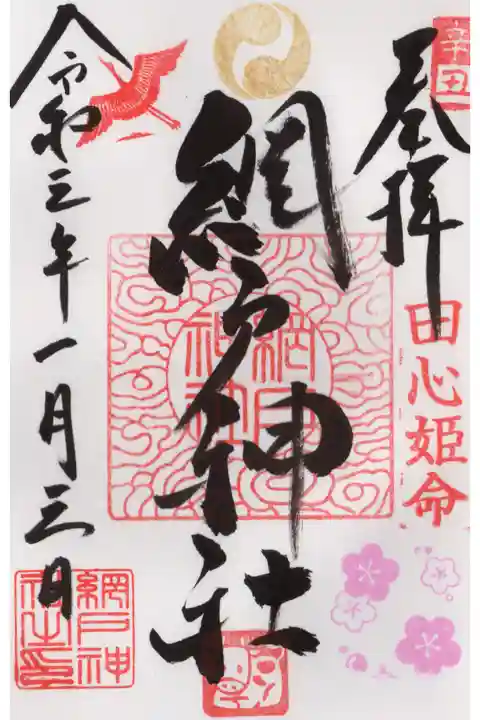 辛丑
奉拝
田心姫命
網戸神社
網戸神社
令和三年一月三日
網戸神社之印